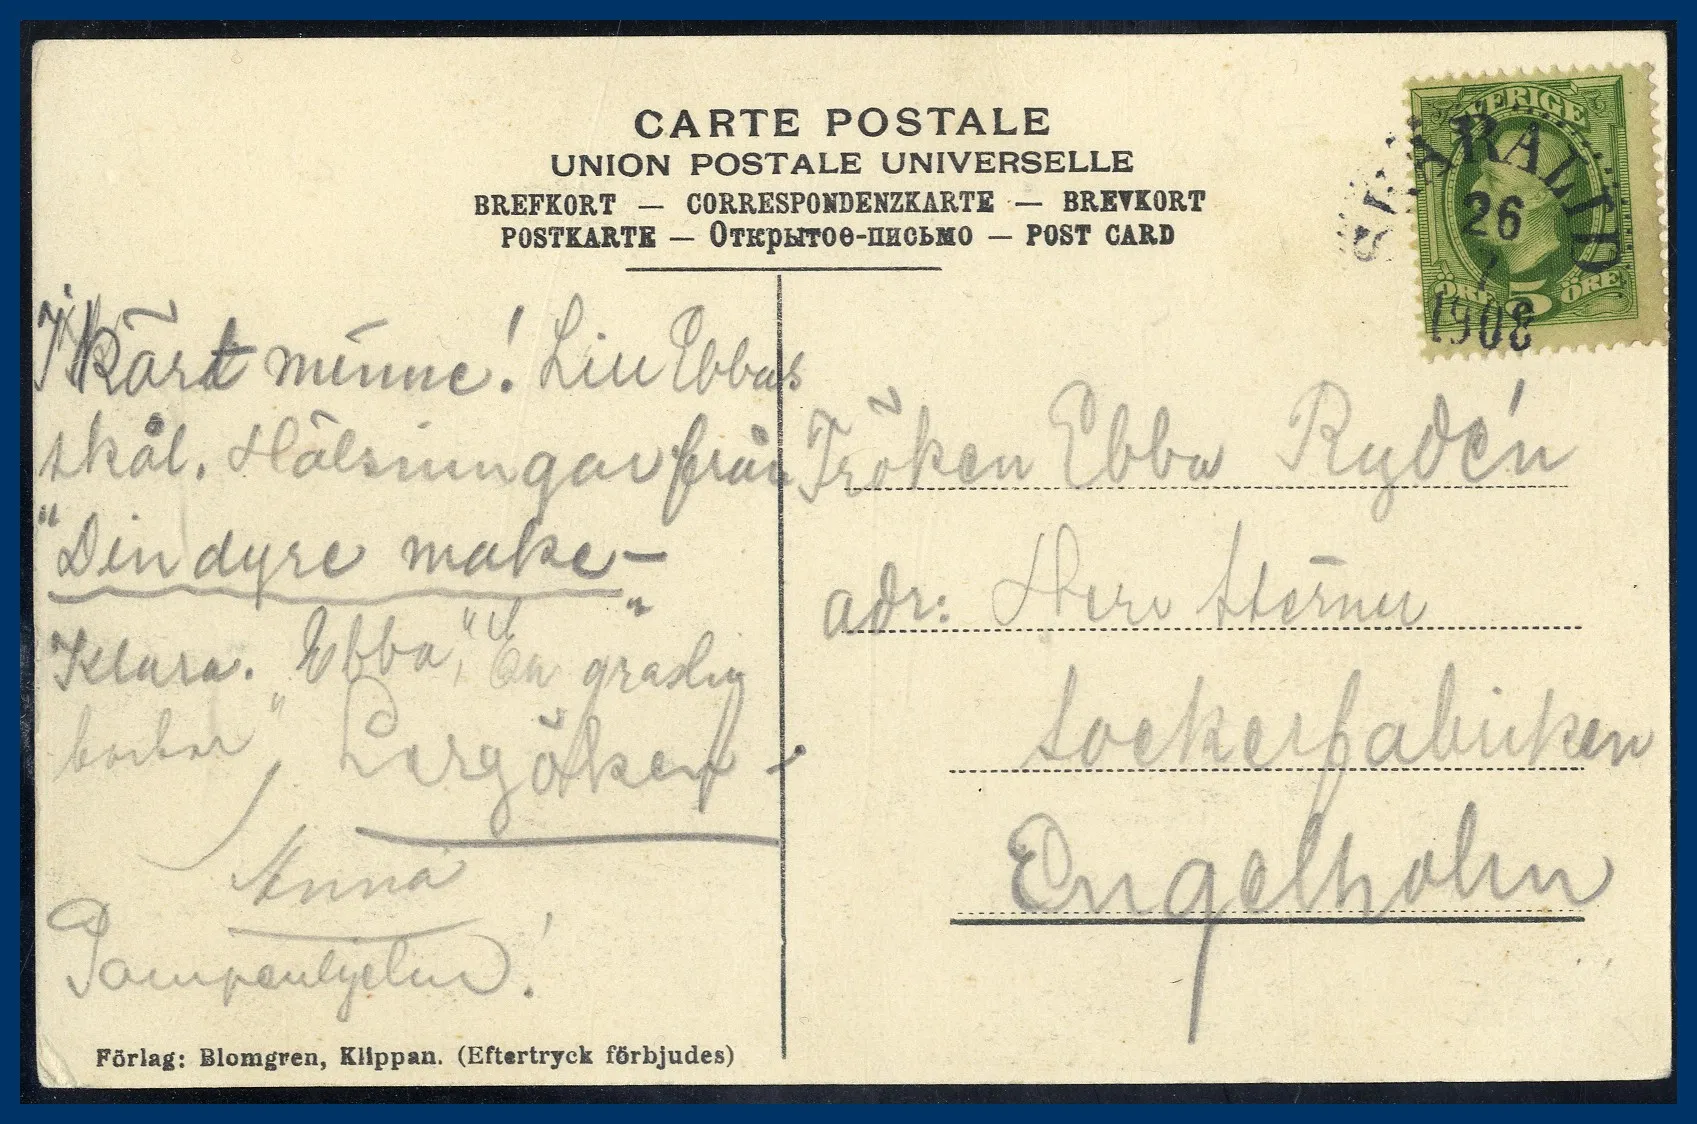 CARTE POSTALE
UNION POSTALE UNIVERSELLE
BREFKORT — CORRESPONDENZKARTE — BREVKORT
POSTKARTE — Открытоѳ-письмо — POST CARD
SVERIGE
ÖRE 5 ÖRE
SKÄRALID
26
7
1908
I kärt minne! Lill Ebbas
skål. Hälsningar från
"Din dyre make –
Klara. Ebba, "En graslig
barbar",
Anna
Pampenhjelm!
Fröken Ebba Rydén
adr: Herr Sterner
Sockerfabriken
Engelholm
Förlag: Blomgren, Klippan. (Eftertryck förbjudes)